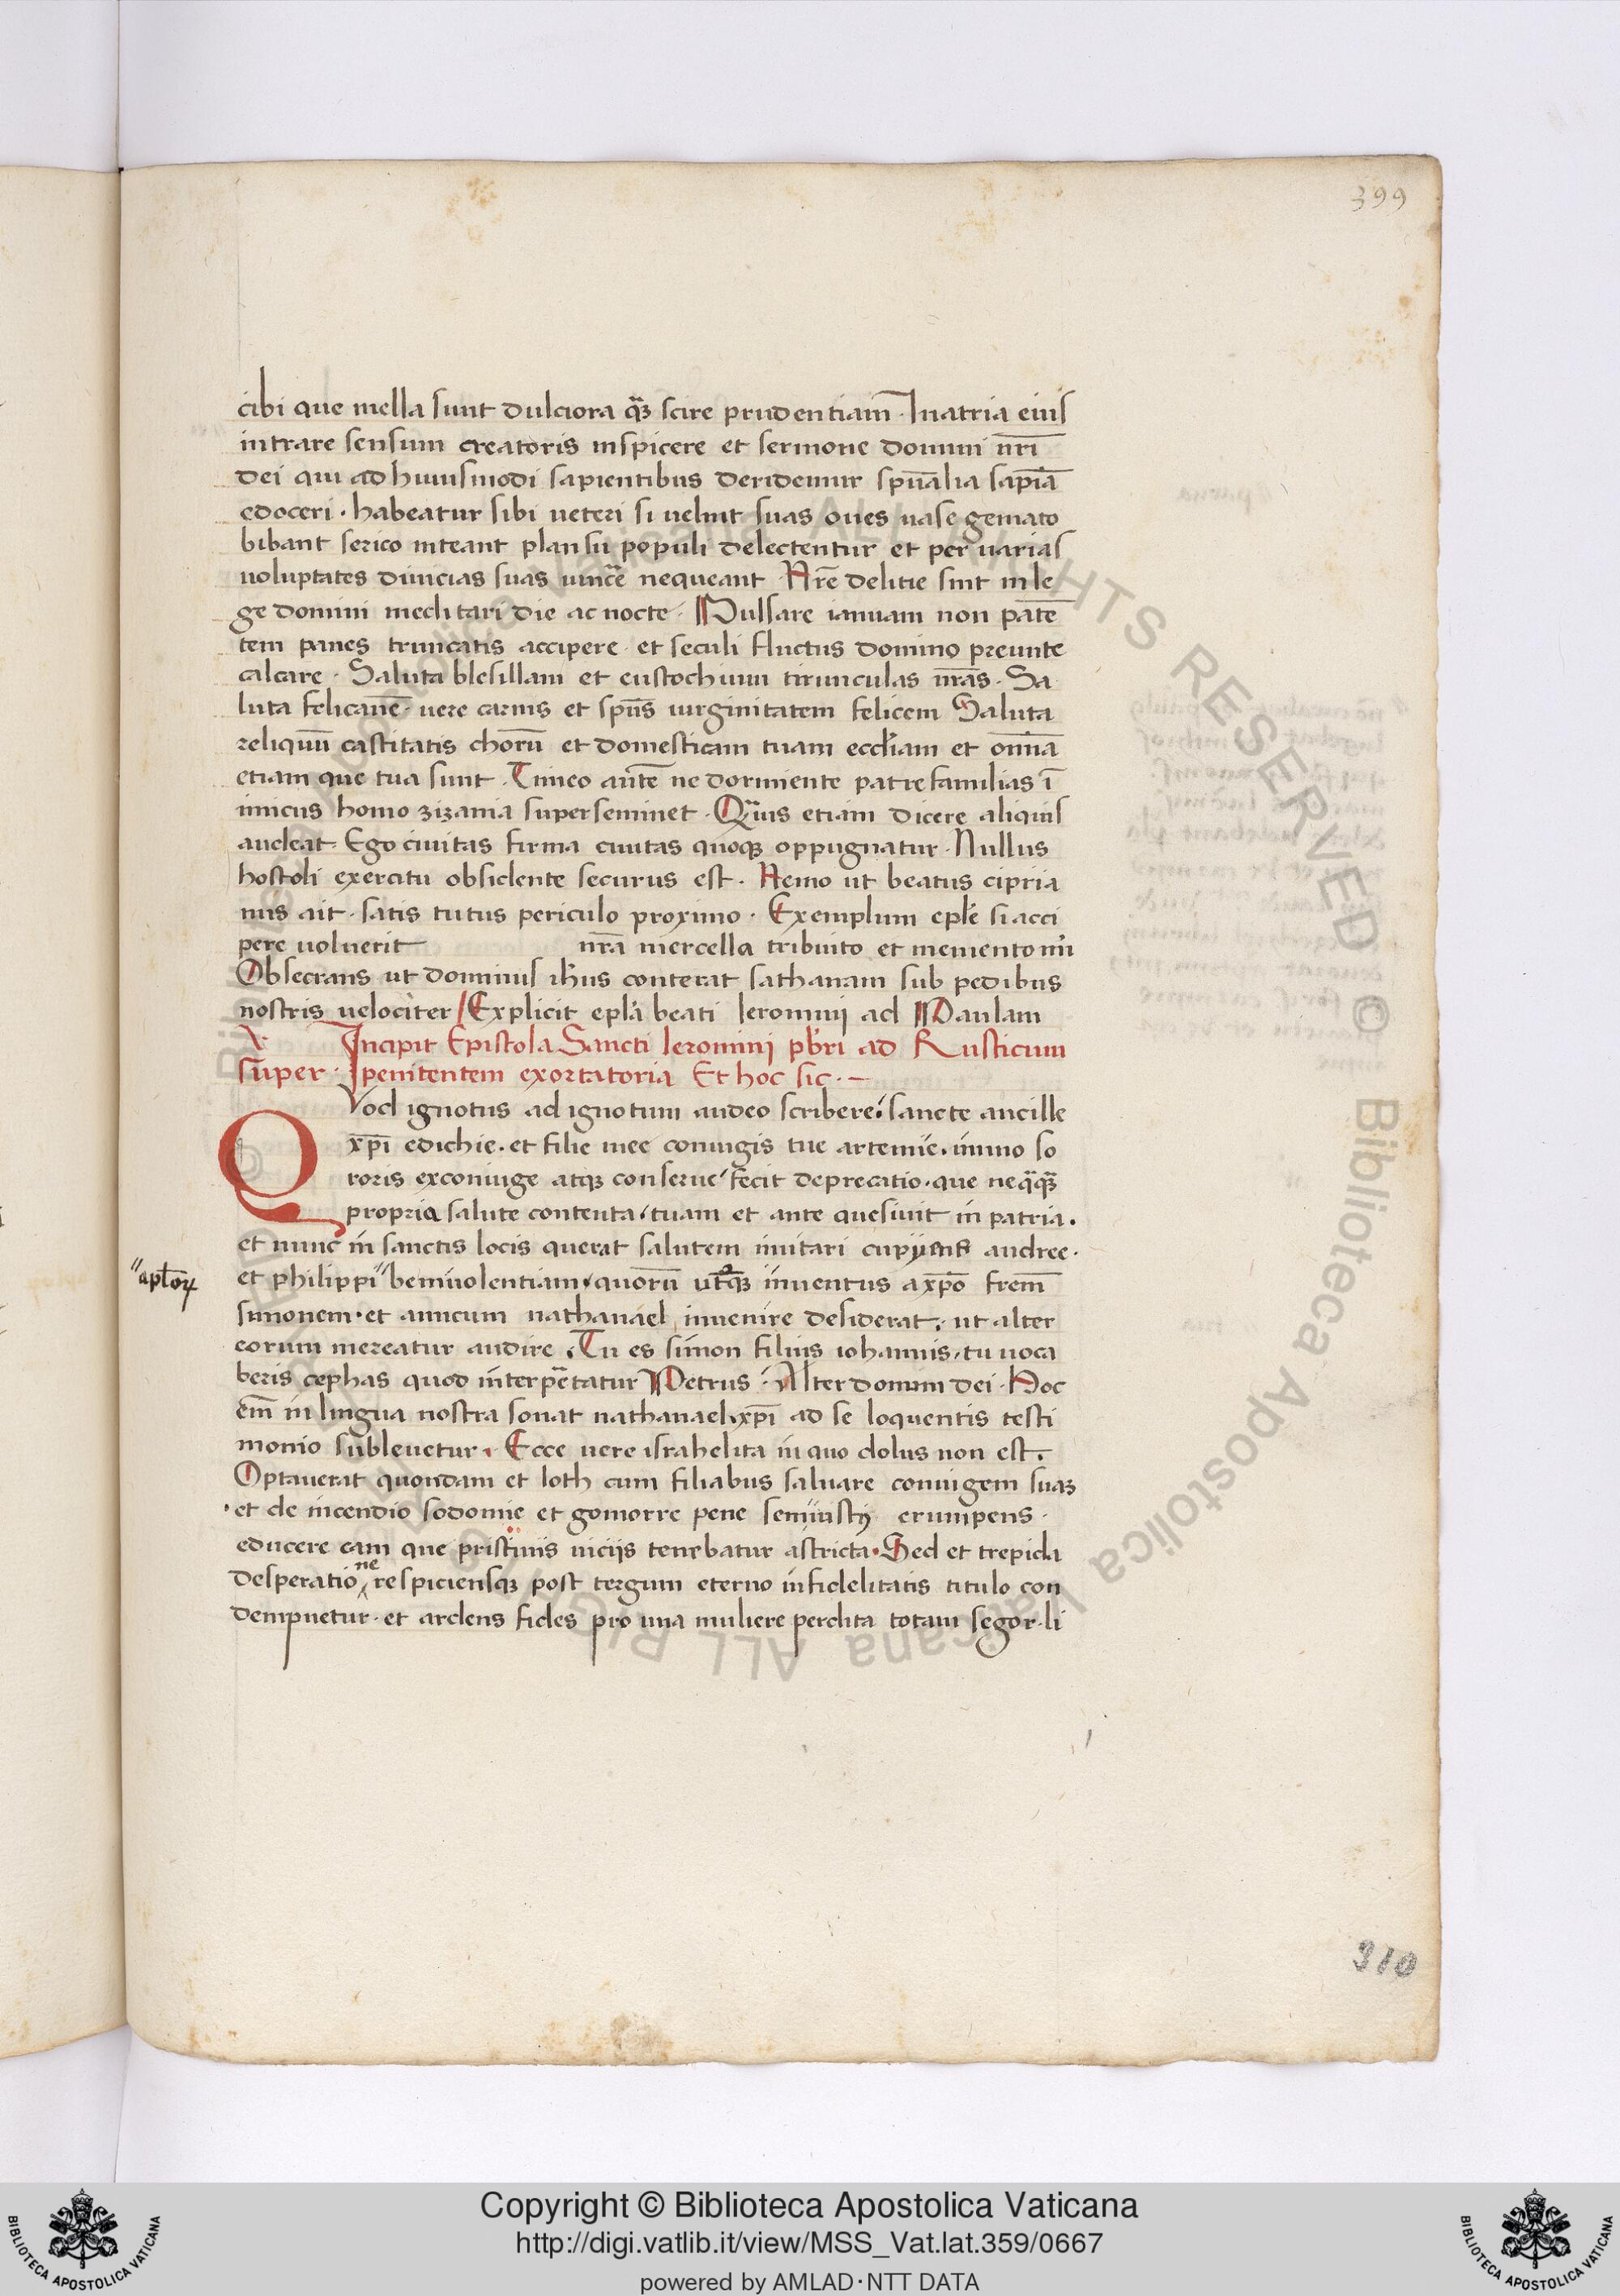 399
cibi que mella sunt dulciora qᷓꝫ scire prudentiam̅ · In atria eius
intrare sensum creatoris inspicere et sermone domini nr̅i
dei qui ad huiusmodi sapientibus deridemur spu̅alia sapi̅a
edoceri · habeatur sibi ueteri si uelint suas oues uase gemato
bibant serico niteant plansu populi delectentur et per uarias
uoluptates diuicias suas uinc̅e nequeant · Nr̅e delitie sint in le
ge domini meditari die ac nocte · Pulsare ianuam non pate̅
tem panes truncatis accipere · et seculi fluctus domino preunte
calcare · Saluta blesillam et eustochium tirunculas nr̅as · Sa
luta felicane̅ · uere carnis et spu̅s uirginitatem felicem Saluta
reliquu̅ castitatis choru̅ et domesticam tuam eccl̅iam et omn̅a
etiam que tua sunt · Timeo aut̅e ne dormiente patre familias i̅
imicus homo zizania superseminet · Qᷓuis etiam dicere aliquis
audeat · Ego ciuitas firma ciuitas quoqꝫ oppugnatur · Nullus
hostoli exercitu obsidente securus est · Nemo ut beatus cipria
nus ait · satis tutus periculo proximo · Exemplum epl̅e si acci
pere uoluerit nr̅a mercella tribuito et memento mi̅
Obsecrans ut dominus ih̅us conterat sathanam sub pedibus
nostris velociter / Explicit epl̅a beati Ieronimi ad Paulam
Incipit Epistola Sancti Ieronimi pb̅ri ad Rusticum
super · penitentem exortatoria Et hoc sic · —
QVod ignotus ad ignotum audeo scribere : sancte ancille
xp̅i edichie · et filie mee coniugis tue artemie · immo so
roris ex coniuge atqꝫ conserue / fecit deprecatio · que neqᷓqᷓꝫ
propria salute contenta / tuam et ante quesiuit in patria ·
et nunc in sanctis locis querat salutem imitari cupyens andree ·
"apl̅oꝝ
et philippi" beniuolentiam · quoru̅ ut̅qꝫ inuentus a xp̅o frem̅
simonem · et amicum nathanael inuenire desiderat · ut alter
eorum mereatur audire · Tu es simon filius iohannis / tu uoca
beris cephas quod interp̅etatur Petrus : Alter donum dei · Hoc
em̅ in lingua nostra sonat nathanael · xp̅i ad se loquentis testi
monio subleuetur · Ecce uere israhelita in quo dolus non est ·
Optauerat quondam et loth cum filiabus saluare coniugem suaꝫ
· et de incendio sodomie et gomorre pene semiustꝯ erumpens ·
educere eam que pristinis uiciis tenebatur astricta · Sed et trepida
desperatione respiciensqꝫ post tergum eterno infidelitatis titulo con
dempnetur · et ardens fides pro una muliere perdita totam segor · li
310
© Biblioteca Apostolica Vaticana ALL RIGHTS RESERVED
BIBLIOTECA APOSTOLICA VATICANA
Copyright © Biblioteca Apostolica Vaticana
http://digi.vatlib.it/view/MSS_Vat.lat.359/0667
powered by AMLAD·NTT DATA
BIBLIOTECA APOSTOLICA VATICANA